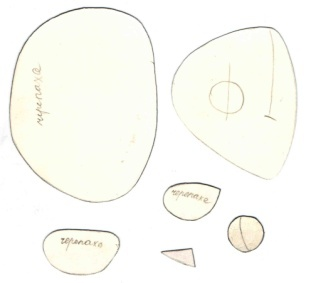 черепаха
черепаха
черепаха